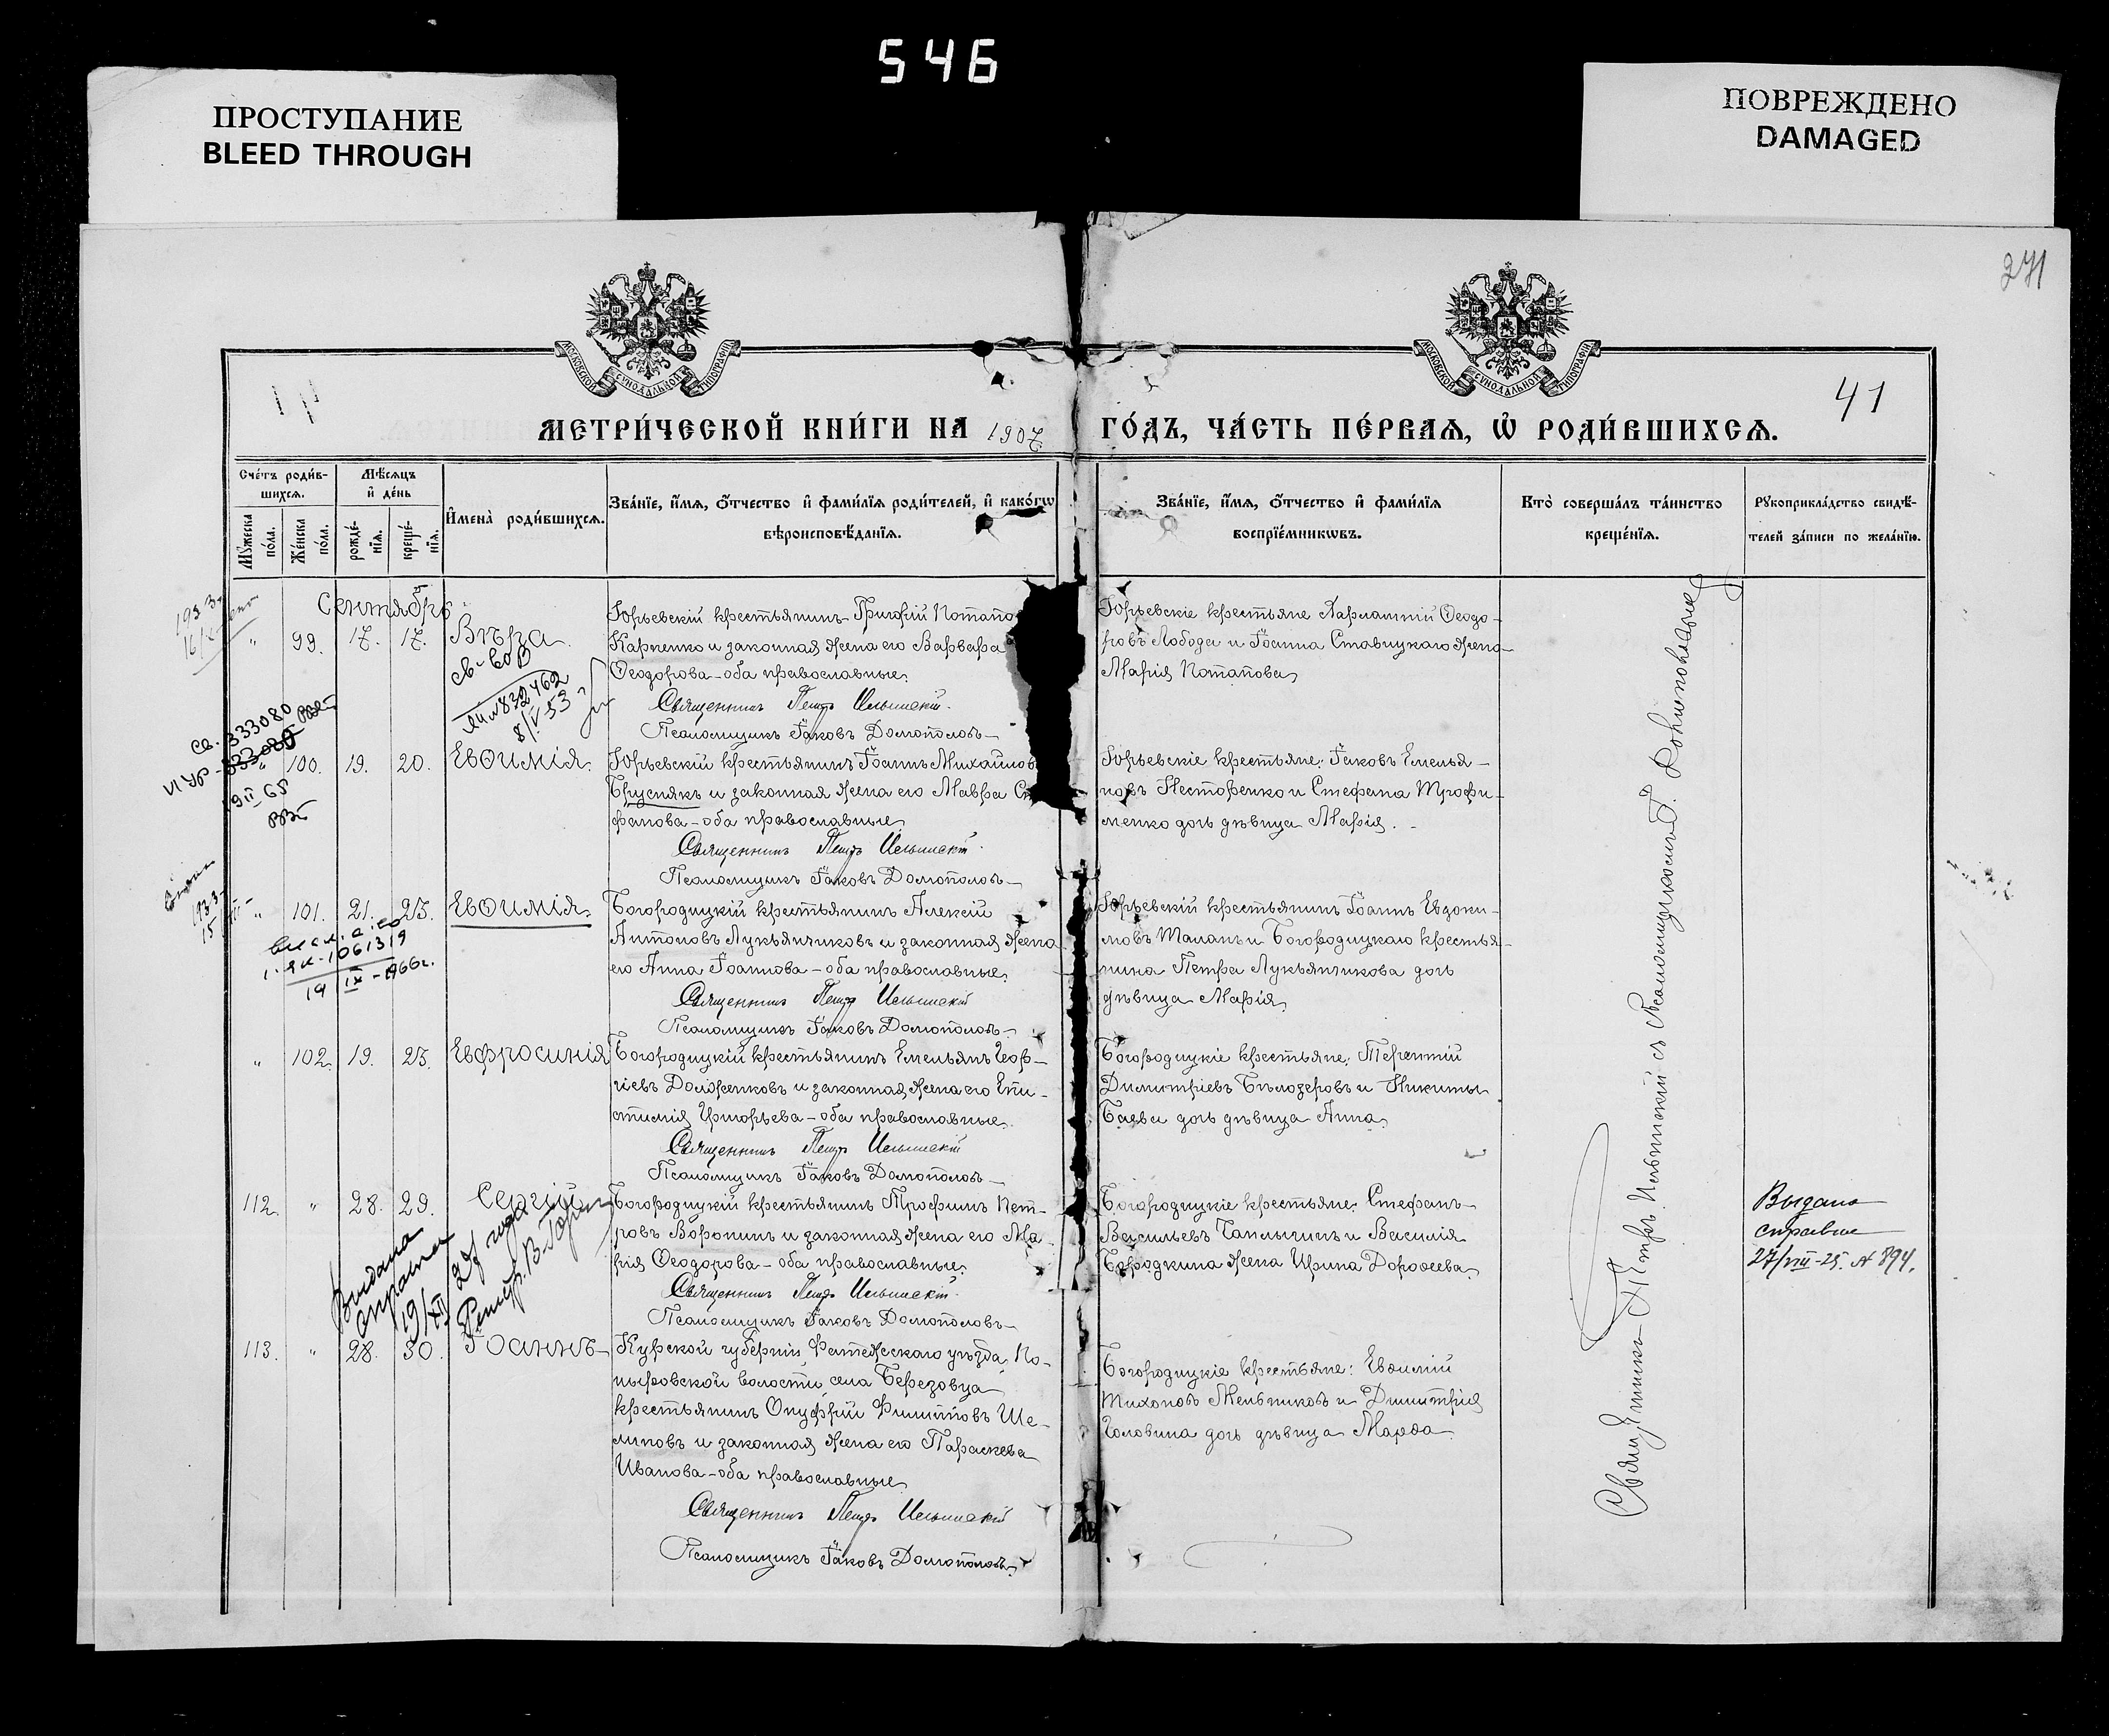 546
ПРОСТУПАНИЕ
BLEED THROUGH
ПОВРЕЖДЕНО
DAMAGED
271
МОСКОВСКОЙ СУНОДАЛЬНОЙ ТИПОГРАФІИ
МОСКОВСКОЙ СУНОДАЛЬНОЙ ТИПОГРАФІИ
41
МЕТРИ́ЧЕСКОЙ КНИ́ГИ НА 1907 ГО́ДЪ, ЧА́СТЬ ПЕ́РВАѦ, Ѡ҆ РОДИ́ВШИХСѦ.
Сче́тъ роди́в-
шихсѧ.
Мѣ́сѧцъ
и҆ де́нь
Мꙋ́жеска
по́ла.
Же́нска
по́ла.
рожде́-
нїѧ.
креще́-
нїѧ.
И҆мена̀ роди́вшихсѧ.
Зва́нїе, и҆́мѧ, ѻ҆́тчество и҆ фами́лїѧ роди́телей, и҆ како́гѡ
вѣроисповѣ́данїѧ.
Зва́нїе, и҆́мѧ, ѻ҆́тчество и҆ фами́лїѧ
воспрїе́мникѡвъ.
Кто̀ соверша́лъ та́инство
креще́нїѧ.
Рꙋкоприкла́дство свидѣ́-
телей за́писи по жела́нїю.
Сентябрь
" 99. 17. 17. Вѣра
Юрьевскій крестьянинъ Григорій Потапо
Карпенко и законная жена его Варвара
Ѳеодорова – оба православные.
Священникъ Петръ Ильинскій.
Псаломщикъ Іаковъ Домополовъ
Юрьевскіе крестьяне Харлампій Ѳеодо-
ровъ Лобода и Іоанна Ставицкаго жена
Марія Потапова
832462
8/V 53
св. 333080
333080
19 II 65
" 100. 19. 20. Евѳимія.
Юрьевскій крестьянинъ Іоаннъ Михайлов
Бруснякъ и законная жена его Мавра Ст
фанова – оба православные.
Священникъ Петръ Ильинскій.
Псаломщикъ Іаковъ Домополовъ
Юрьевскіе крестьяне: Іаковъ Емелья-
новъ Несторенко и Стефана Трофи-
менко дочь дѣвица Марія.
" 101. 21. 23. Евѳимія.
1061319
19 IX - 1966г.
Богородицкій крестьянинъ Алексій
Антоновъ Лукьянчиковъ и законная жена
его Анна Іоаннова – оба православные.
Священникъ Петръ Ильинскій
Псаломщикъ Іаковъ Домополовъ
Юрьевскій крестьянинъ Іоаннъ Евдоки-
мовъ Таланъ и Богородицкаго крестья-
нина Петра Лукьянчикова дочь
дѣвица Марія.
" 102. 19. 23. Евфросинія
Богородицкій крестьянинъ Емельянъ Геор-
гіевъ Долженковъ и законная жена его Епи-
стимія Григорьева – оба православные.
Священникъ Петръ Ильинскій
Псаломщикъ Іаковъ Домополовъ
Богородицкіе крестьяне: Терентій
Димитріевъ Бѣлозеровъ и Никиты
Баева дочь дѣвица Анна.
112. " 28. 29. Сергій
Выдана
справка
Богородицкій крестьянинъ Трофимъ Пет-
ровъ Воронинъ и законная жена его Ма-
рія Ѳеодорова – оба православные.
Священникъ Петръ Ильинскій.
Псаломщикъ Іаковъ Домополовъ
Богородицкіе крестьяне: Стефанъ
Васильевъ Чаплыгинъ и Василія
Бородкина жена Ирина Дороѳеева.
Выдана
справка
27/VIII-25. № 894.
113. " 28. 30. Іоаннъ
Курской губерніи Фатежскаго уѣзда, По-
ныровской волости, села Березовца
крестьянинъ Онуфрій Филипповъ Ше-
лиховъ и законная жена его Параскева
Иванова – оба православные
Священникъ Петръ Ильинскій
Псаломщикъ Іаковъ Домополовъ
Богородицкіе крестьяне: Евѳимій
Тихоновъ Мельниковъ и Димитрія
Головина дочь дѣвица Марѳа
Священникъ Петръ Ильинскій съ Псаломщикомъ І. Домополовымъ